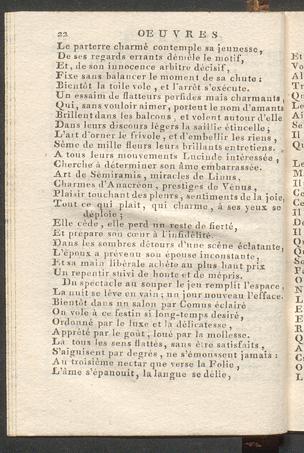 22 OEUVRES
Le parterre charmé contemple sa jeunesse,
De ses regards errants démêle le motif,
Et, de son innocence arbitre décisif,
Fixe sans balancer le moment de sa chute :
Bientôt la toile vole, et l'arrêt s'exécute.
Un essaim de flatteurs perfides mais charmants,
Qui, sans vouloir aimer, portent le nom d'amants
Brillent dans les balcons, et volent autour d'elle
Dans leurs discours légers la saillie étincelle ;
L'art d'orner le frivole, et d'embellir les riens,
Sème de mille fleurs leurs brillants entretiens.
A tous leurs mouvements Lucinde intéressée,
Cherche à déterminer son âme embarrassée.
Art de Sémiramis, miracles de Linus,
Charmes d'Anacréon, prestiges de Vénus,
Plaisir touchant des pleurs, sentiments de la joie,
Tout ce qui plaît, qui charme, à ses yeux se
déploie ;
Elle cède, elle perd un reste de fierté,
Et prépare son cœur à l'infidélité.
Dans les sombres détours d'une scène éclatante,
L'époux a prévenu son épouse inconstante,
Et sa main libérale achète au plus haut prix
Un repentir suivi de honte et de mépris.
Du spectacle au souper le jeu remplit l'espace,
La nuit se lève en vain ; un jour nouveau l'efface.
Bientôt dans un salon par Comus éclairé
On vole à ce festin si long-temps desiré,
Ordonné par le luxe et la délicatesse,
Apprêté par le goût, loué par la mollesse.
Là tous les sens flattés, sans être satisfaits,
S'aiguisent par degrés, ne s'émoussent jamais :
Au troisième nectar que verse la Folie,
L'âme s'épanouit, la langue se délie,